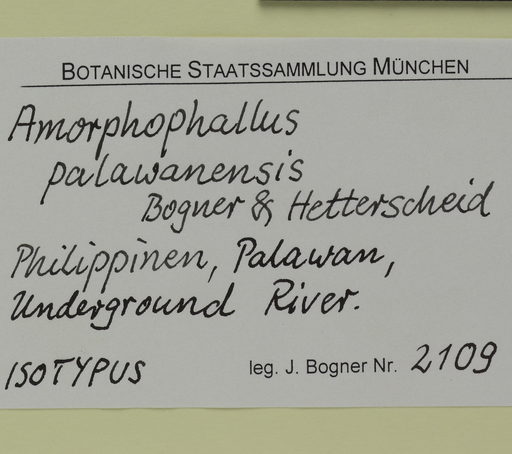 BOTANISCHE STAATSSAMMLUNG MÜNCHEN
Amorphophallus
palawanensis
Bogner & Hetterscheid
Philippinen, Palawan,
Underground River.
ISOTYPUS leg. J. Bogner Nr. 2109